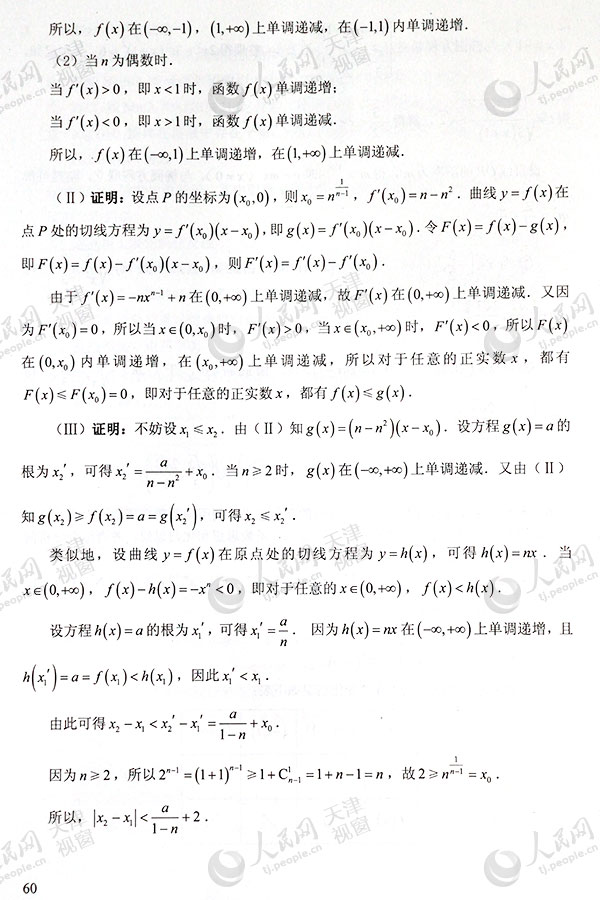 所以，f(x)在(-∞,-1)，(1,+∞)上单调递减，在(-1,1)内单调递增．
（2）当n为偶数时．
当f′(x)>0，即x<1时，函数f(x)单调递增；
当f′(x)<0，即x>1时，函数f(x)单调递减．
所以，f(x)在(-∞,1)上单调递增，在(1,+∞)上单调递减．
（Ⅱ）证明：设点P的坐标为(x₀,0)，则x₀=n^(1/(n-1))，f′(x₀)=n-n²．曲线y=f(x)在
点P处的切线方程为y=f′(x₀)(x-x₀)，即g(x)=f′(x₀)(x-x₀)．令F(x)=f(x)-g(x)，
即F(x)=f(x)-f′(x₀)(x-x₀)，则F′(x)=f′(x)-f′(x₀)．
由于f′(x)=-nx^(n-1)+n在(0,+∞)上单调递减，故F′(x)在(0,+∞)上单调递减．又因
为F′(x₀)=0，所以当x∈(0,x₀)时，F′(x)>0，当x∈(x₀,+∞)时，F′(x)<0，所以F(x)
在(0,x₀)内单调递增，在(x₀,+∞)上单调递减，所以对于任意的正实数x，都有
F(x)≤F(x₀)=0，即对于任意的正实数x，都有f(x)≤g(x)．
（Ⅲ）证明：不妨设x₁≤x₂．由（Ⅱ）知g(x)=(n-n²)(x-x₀)．设方程g(x)=a的
根为x₂′，可得x₂′=a/(n-n²)+x₀．当n≥2时，g(x)在(-∞,+∞)上单调递减．又由（Ⅱ）
知g(x₂)≥f(x₂)=a=g(x₂′)，可得x₂≤x₂′．
类似地，设曲线y=f(x)在原点处的切线方程为y=h(x)，可得h(x)=nx．当
x∈(0,+∞)，f(x)-h(x)=-xⁿ<0，即对于任意的x∈(0,+∞)，f(x)<h(x)．
设方程h(x)=a的根为x₁′，可得x₁′=a/n．因为h(x)=nx在(-∞,+∞)上单调递增，且
h(x₁′)=a=f(x₁)<h(x₁)，因此x₁′<x₁．
由此可得x₂-x₁<x₂′-x₁′=a/(1-n)+x₀．
因为n≥2，所以2^(n-1)=(1+1)^(n-1)≥1+C¹ₙ₋₁=1+n-1=n，故2≥n^(1/(n-1))=x₀．
所以，|x₂-x₁|<a/(1-n)+2．
60
人民网 天津视窗
tj.people.cn